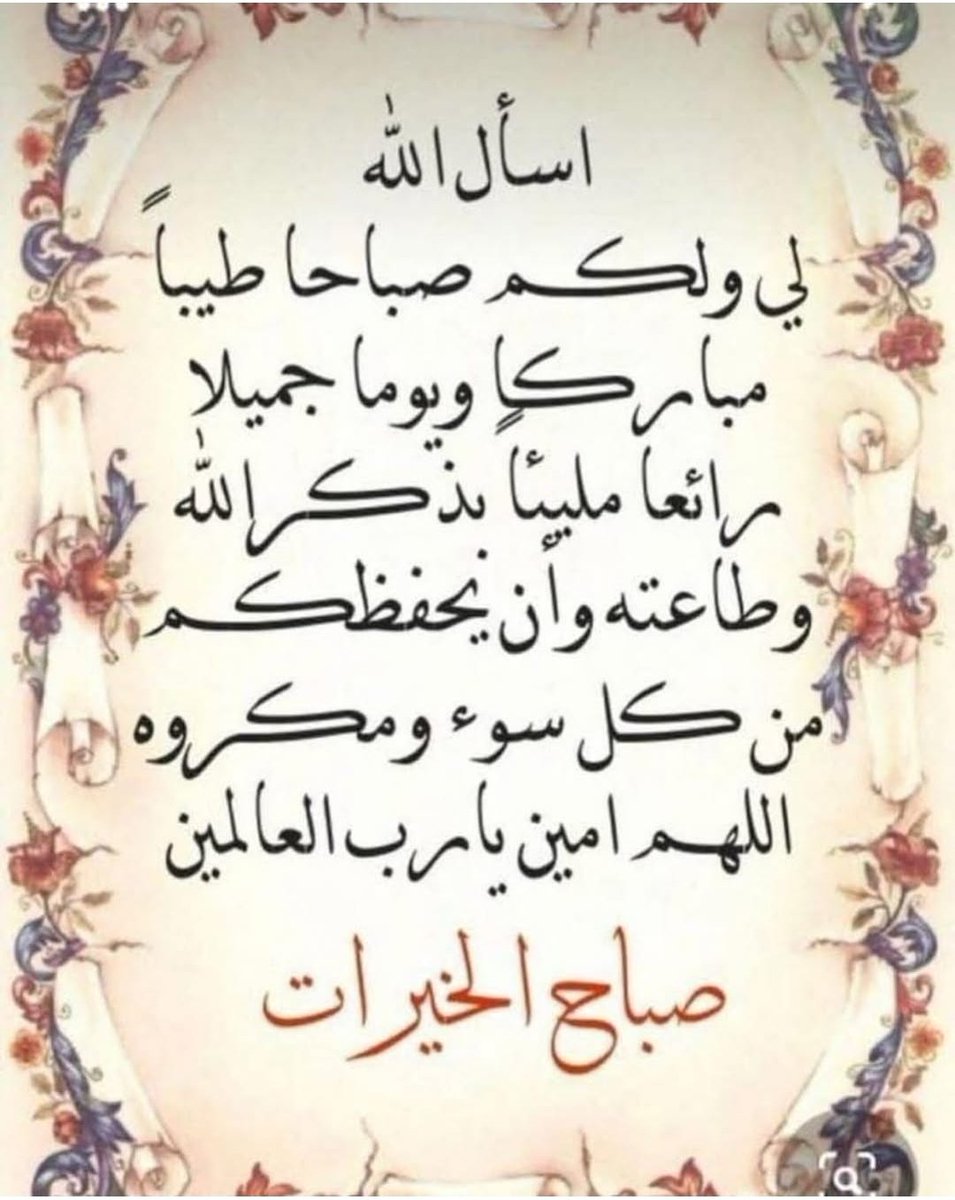 اسأل الله
لي ولكم صباحا طيباً
مباركاٍ ويوما جميلا
رائعا مليئاً بذكر الله
وطاعته وأن يحفظكم
من كل سوء ومكروه
اللهم امين يارب العالمين
صباح الخيرات